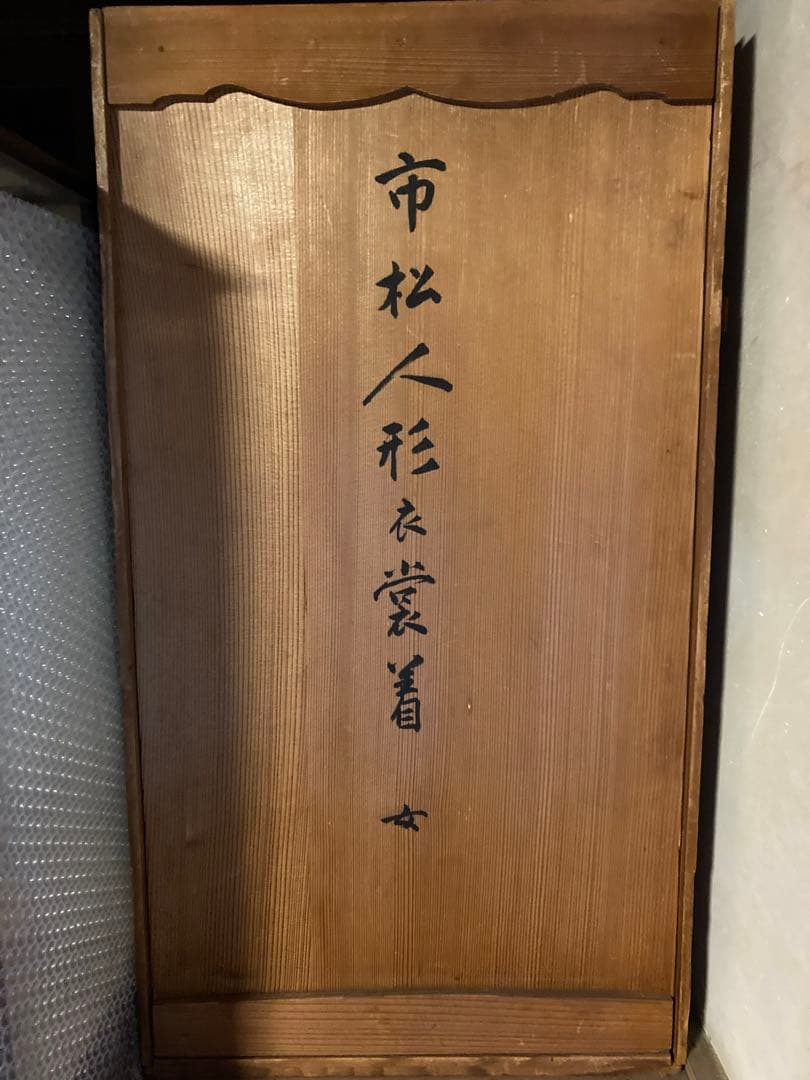 市松人形衣裳着 女